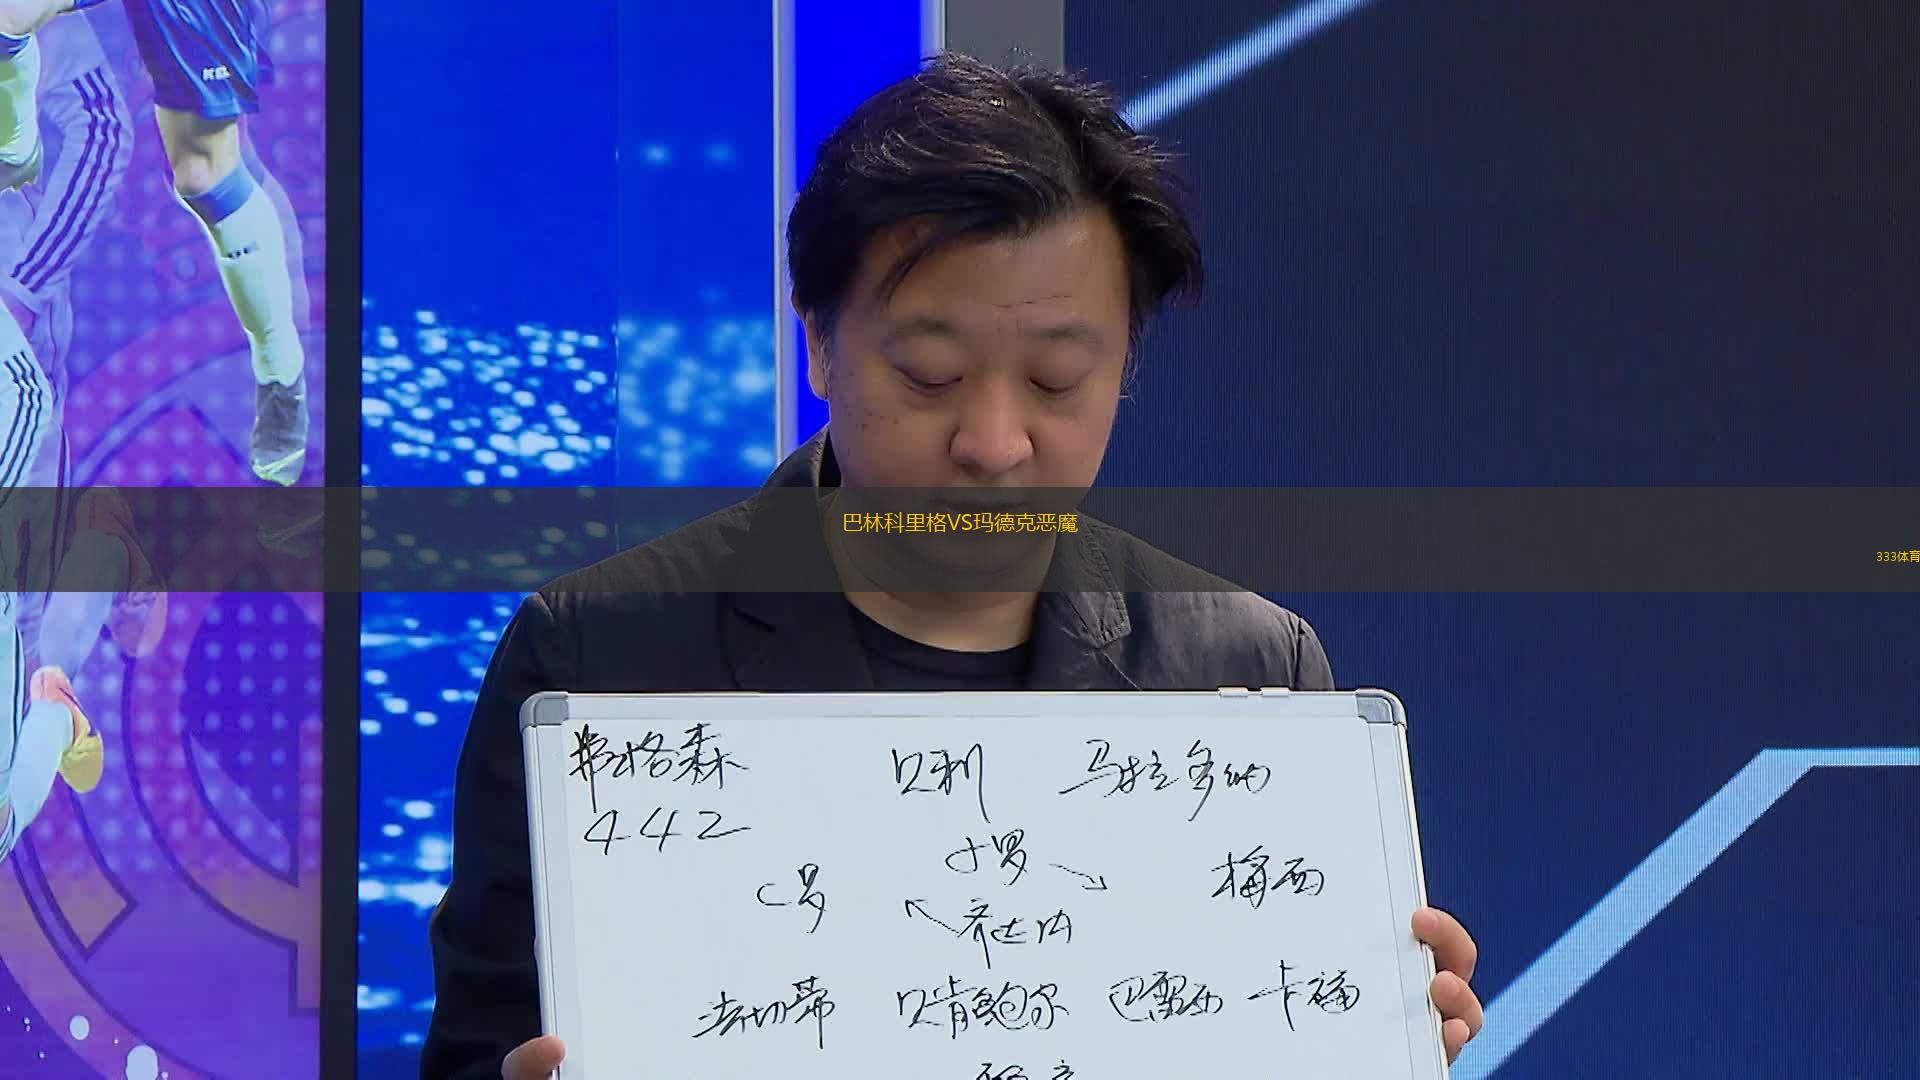 巴林科里格VS玛德克恶魔
333体育
弗格森 贝利 马拉多纳
442
小罗
C罗 梅西
齐达内
法切蒂 贝肯鲍尔 巴雷西 卡福